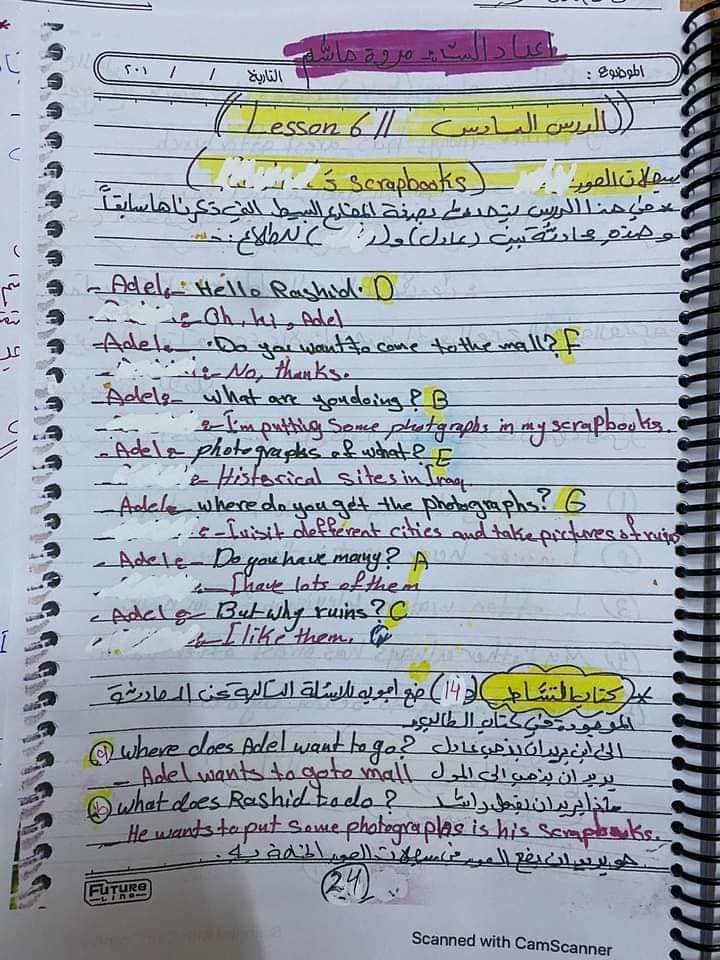 اعداد الست مروة هاشم
الموضوع : التاريخ / / ٢٠١
((Lesson 6 // الدرس السادس))
(s Scrapbooks) سجلات الصور
* في هذا الدرس يتحدث بصيغة المضارع البسيط التي ذكرناها سابقاً
وهذه محادثة بين (عادل) و( ) للاطلاع :-
- Adel:- Hello Rashid. D
:- Oh, hi, Adel
- Adel:- Do you want to come to the mall? F
:- No, thanks.
Adel:- what are you doing? B
:- I'm putting some photgraphs in my scrapbooks.
- Adel:- photographs of what? E
:- Historical sites in Iraq
Adel:- where do you get the photographs? G
:- I visit defferent cities and take pictures of ruins
- Adel:- Do you have many? A
:- I have lots of them
- Adel:- But why ruins? C
:- I like them.
* كتاب النشاط ص (14) ضع اجوبه للاسئلة التالية عن المحادثة
الموجودة في كتاب الطالب
a) where does Adel want to go? الى اين يريد ان يذهب عادل
- Adel wants to go to mall يريد ان يذهب الى المول
b) what does Rashid to do? ماذا يريد ان يفعل راشد
- He wants to put some photographs is his scrapbooks.
هو يريد ان يضع الصور في سجلات الصور الخاصة به.
24
FUTURE
LINE
Scanned with CamScanner